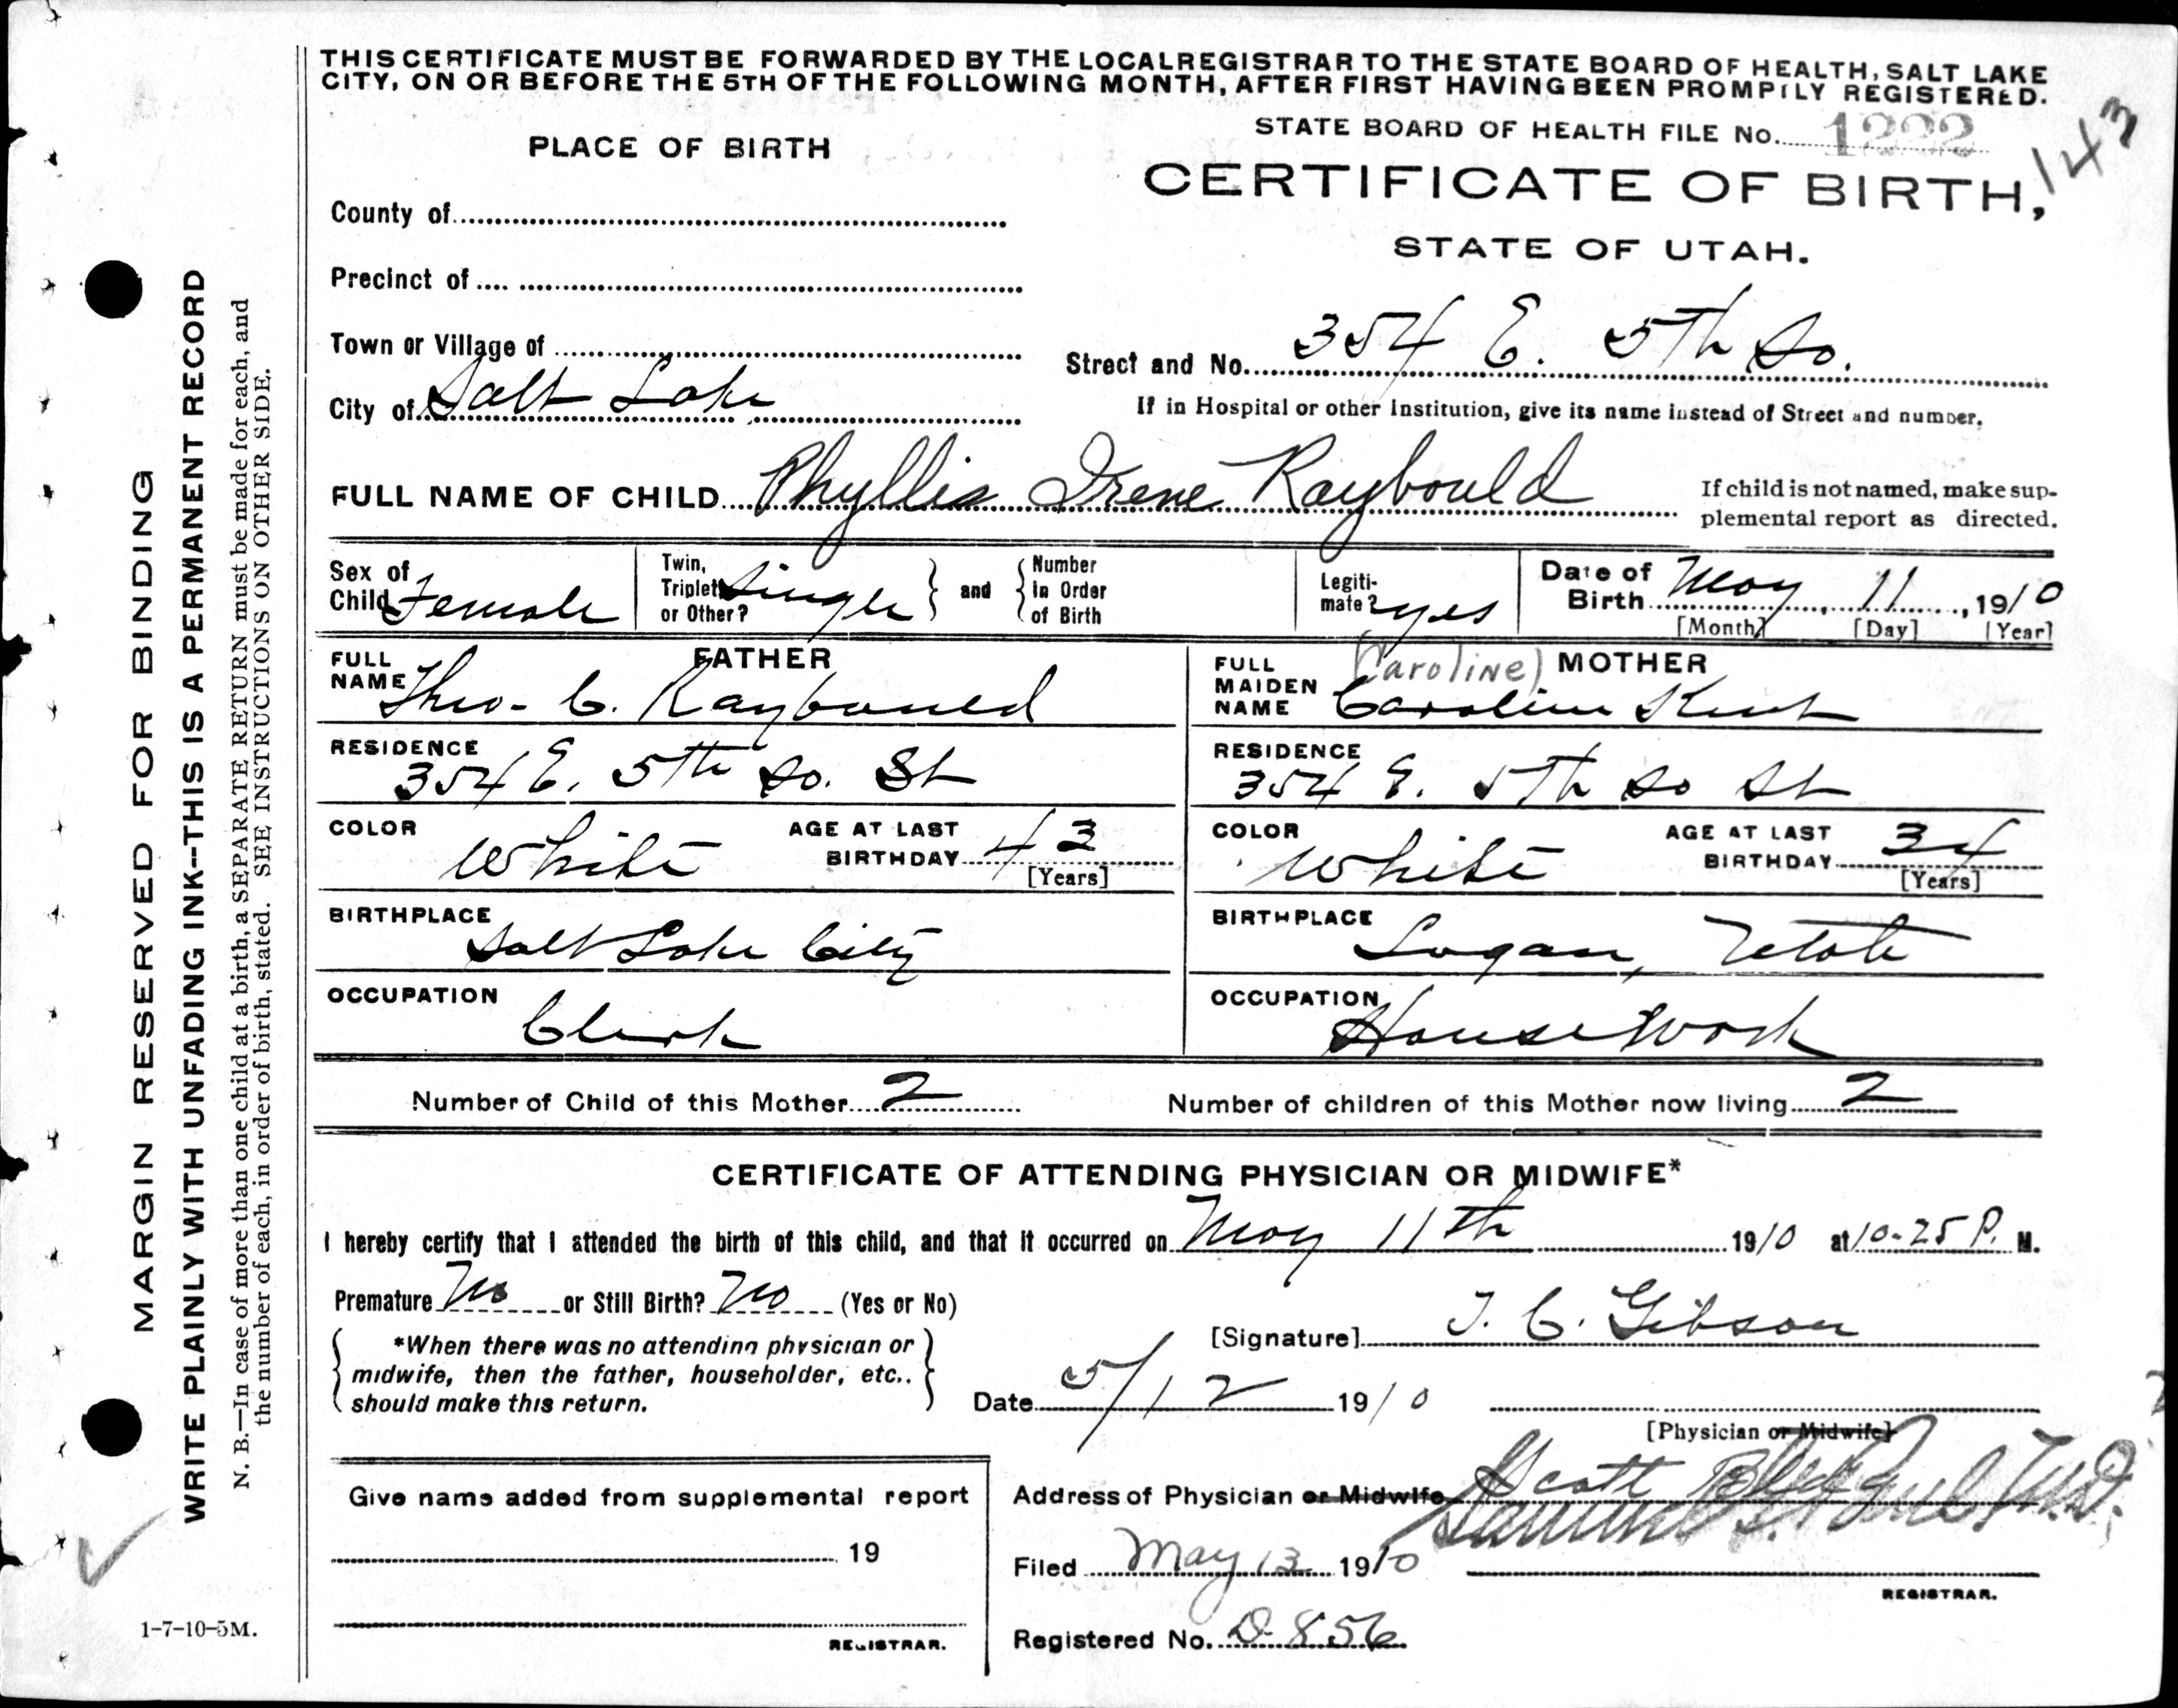 THIS CERTIFICATE MUST BE FORWARDED BY THE LOCAL REGISTRAR TO THE STATE BOARD OF HEALTH, SALT LAKE
CITY, ON OR BEFORE THE 5TH OF THE FOLLOWING MONTH, AFTER FIRST HAVING BEEN PROMPTLY REGISTERED.
STATE BOARD OF HEALTH FILE No. 1222
143
PLACE OF BIRTH
CERTIFICATE OF BIRTH,
STATE OF UTAH.
County of
Precinct of
Town or Village of
Street and No. 354 E. 5th So.
City of Salt Lake
If in Hospital or other Institution, give its name instead of Street and number.
FULL NAME OF CHILD Phyllis Irene Raybould
If child is not named, make sup-
plemental report as directed.
Sex of Child Female
Twin, Triplet or Other? Single
and
Number in Order of Birth
Legiti-mate? yes
Date of Birth May 11, 1910
[Month] [Day] [Year]
FATHER
FULL NAME Theo. C. Raybould
RESIDENCE 354 E. 5th So. St
COLOR White
AGE AT LAST BIRTHDAY 43
[Years]
BIRTHPLACE Salt Lake City
OCCUPATION Clerk
MOTHER
(Caroline)
FULL MAIDEN NAME Caroline Kent
RESIDENCE 354 E. 5th So St
COLOR White
AGE AT LAST BIRTHDAY 34
[Years]
BIRTHPLACE Logan, Utah
OCCUPATION House Work
Number of Child of this Mother 2
Number of children of this Mother now living 2
CERTIFICATE OF ATTENDING PHYSICIAN OR MIDWIFE*
I hereby certify that I attended the birth of this child, and that it occurred on May 11th 1910 at 10-25 P. M.
Premature No or Still Birth? No (Yes or No)
*When there was no attending physician or
midwife, then the father, householder, etc..
should make this return.
[Signature] J. C. Gibson
Date 5/12 1910
[Physician or Midwife]
Give name added from supplemental report
19
REGISTRAR.
Address of Physician or Midwife Scott Bldg
Samuel G. Paul M.D.
Filed May 13 1910
REGISTRAR.
Registered No. D-856
MARGIN RESERVED FOR BINDING
WRITE PLAINLY WITH UNFADING INK--THIS IS A PERMANENT RECORD
N. B.—In case of more than one child at a birth, a SEPARATE RETURN must be made for each, and
the number of each, in order of birth, stated. SEE INSTRUCTIONS ON OTHER SIDE.
1-7-10-5M.